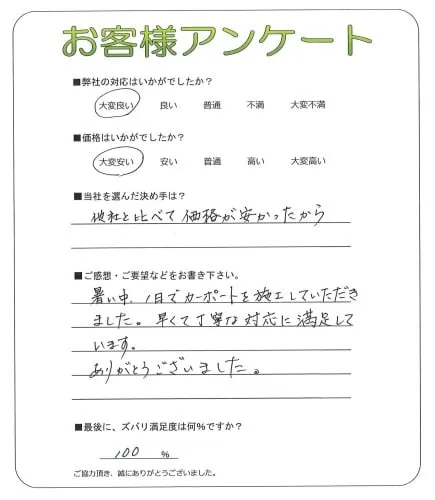 お客様アンケート
■弊社の対応はいかがでしたか？
大変良い 良い 普通 不満 大変不満
■価格はいかがでしたか？
大変安い 安い 普通 高い 大変高い
■当社を選んだ決め手は？
他社と比べて価格が安かったから
■ご感想・ご要望などをお書き下さい。
暑い中、1日でカーポートを施工していただき
ました。早くて丁寧な対応に満足して
います。
ありがとうございました。
■最後に、ズバリ満足度は何％ですか？
100 ％
ご協力頂き、誠にありがとうございました。